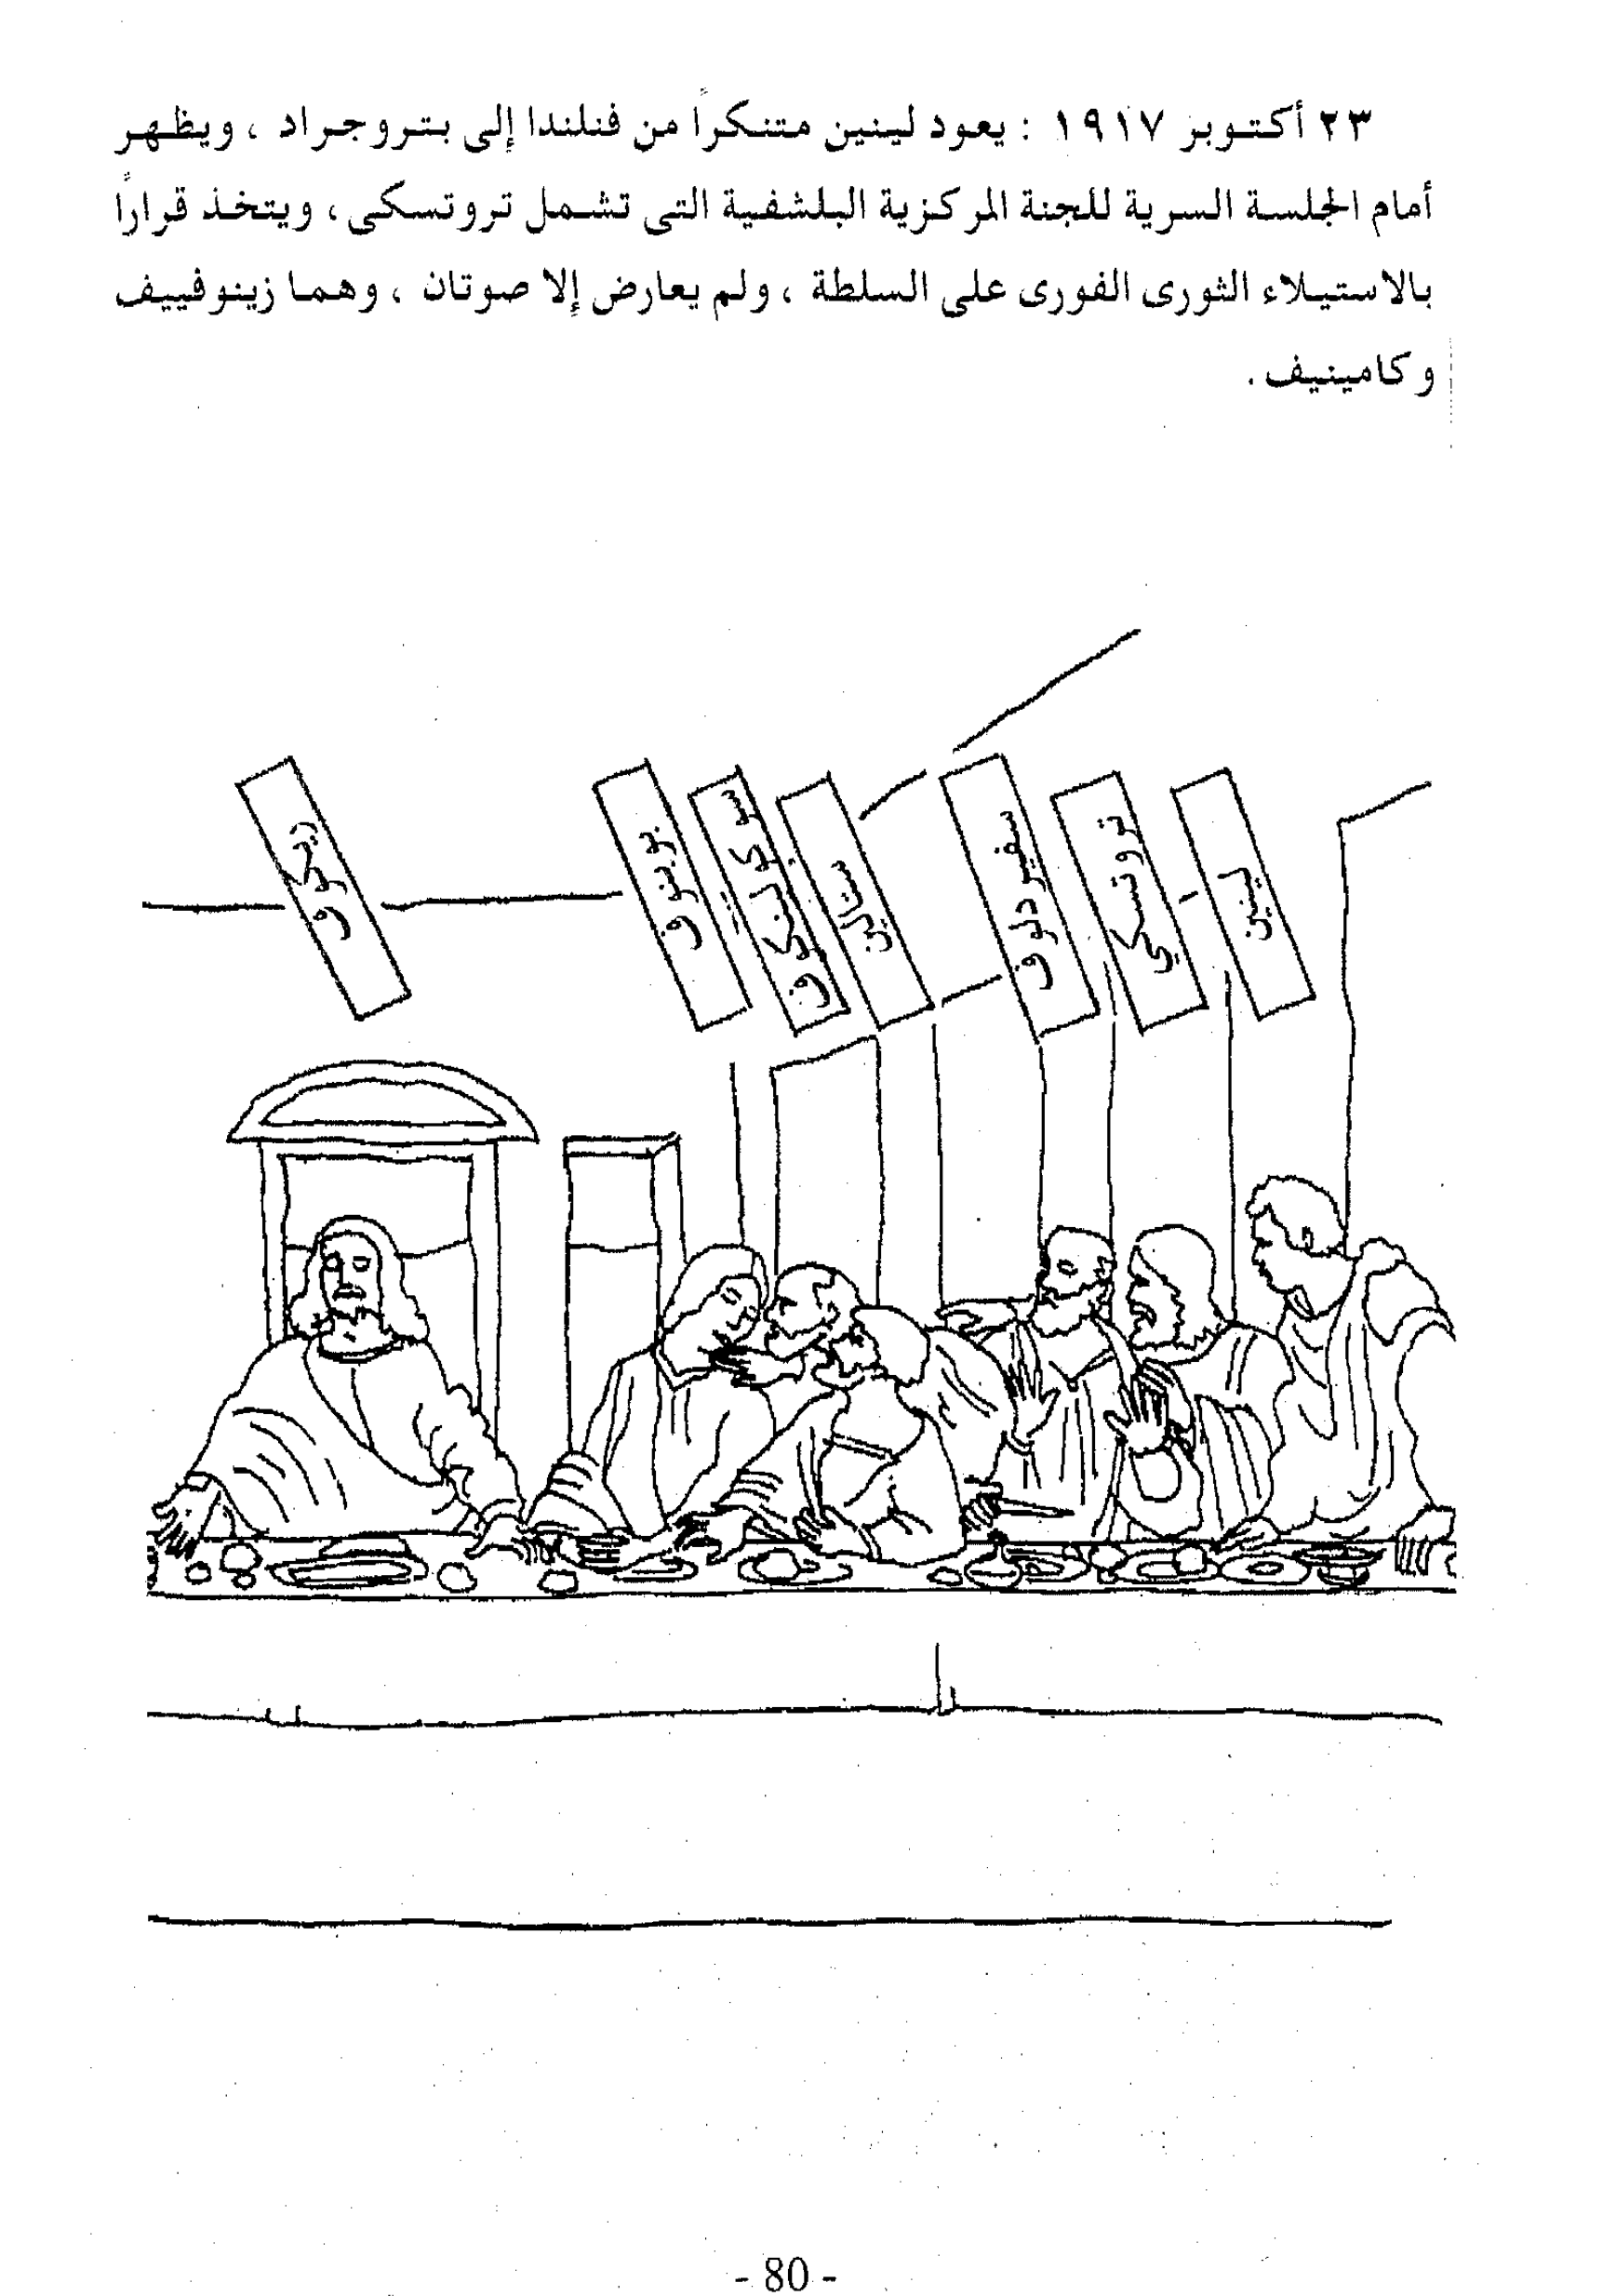 ٢٣ أكتوبر ١٩١٧ : يعود لينين متنكراً من فنلندا إلى بتروجراد ، ويظهر
أمام الجلسة السرية للجنة المركزية البلشفية التى تشمل تروتسكى ، ويتخذ قراراً
بالاستيلاء الثورى الفورى على السلطة ، ولم يعارض إلا صوتان ، وهما زينوفييف
وكامينيف .
لينين
تروتسكي
سفيردلوف
ستالين
سوكولنكوف
بوبنوف
ريكوف
- 80 -